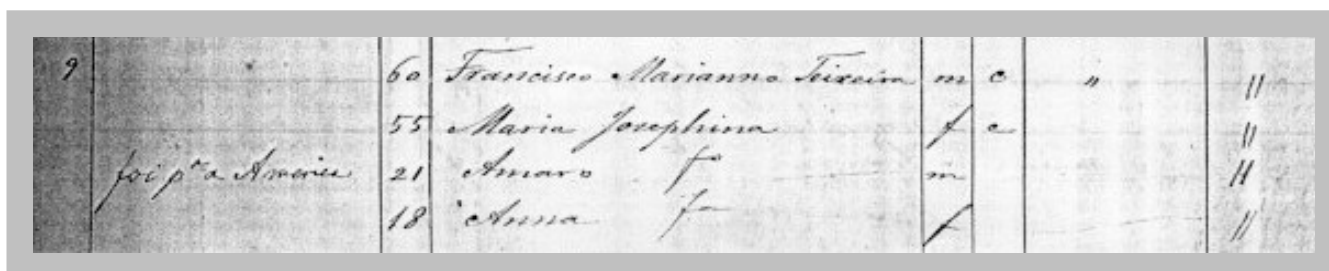 9 60 Francisco Marianno Teixeira m c " "
55 Maria Josephina f c "
foi pª a America 21 Amaro fº m "
18 Anna fª f "